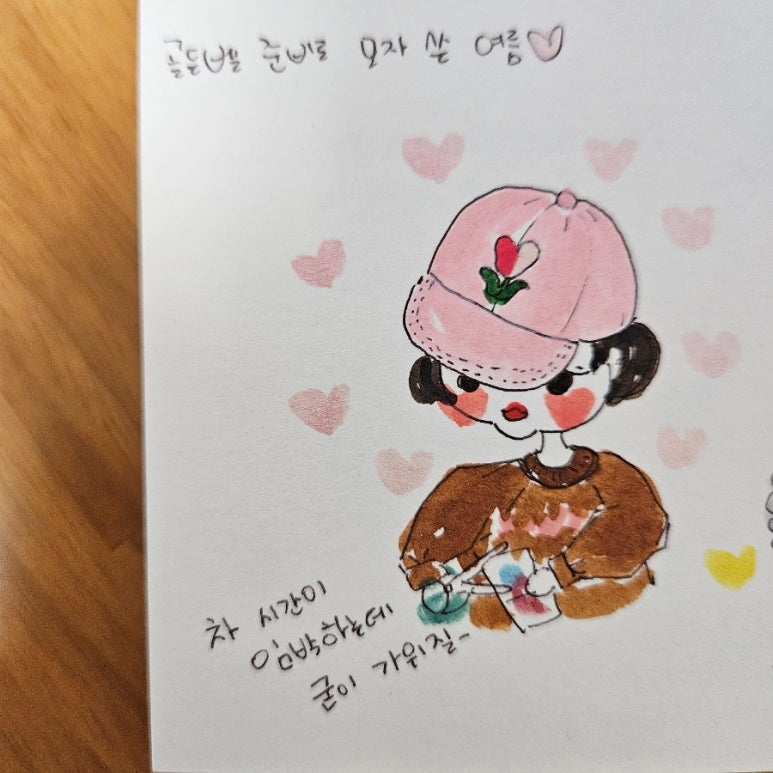 골든벨을 준비로 모자 쓴 여름♡
차 시간이
임박하는데
굳이 가위질-